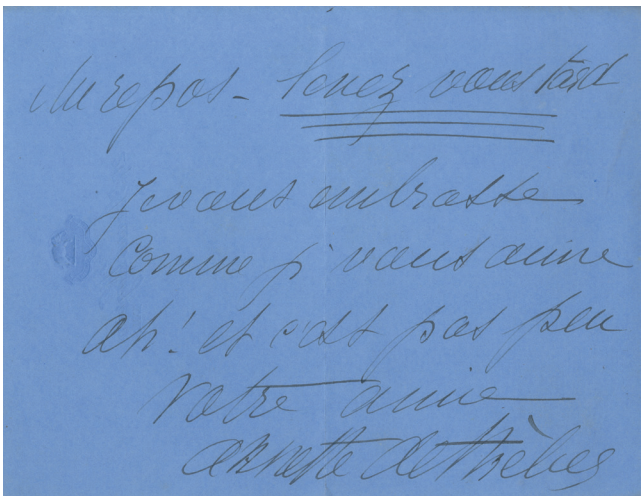 du repos - levez vous tard
je vous embrasse
comme je vous aime
ah! et c'est pas peu
votre amie
de Thèbes